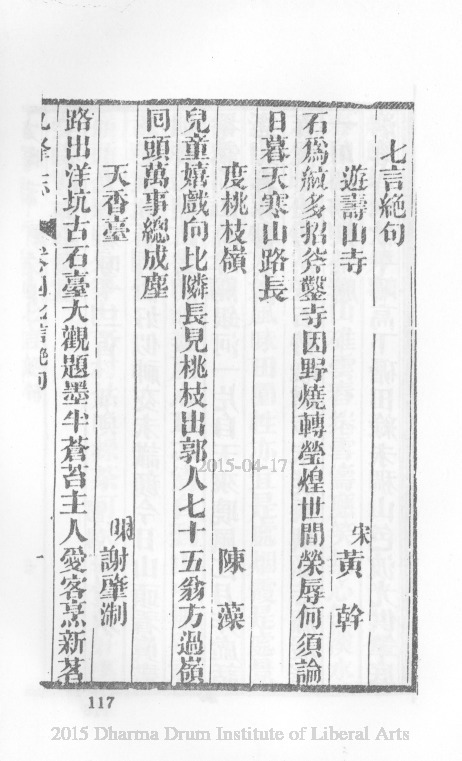 七言絶句
遊壽山寺
宋黃榦
石爲文多招斧鑿寺因野燒轉瑩煌世間榮辱何須論
日暮天寒山路長
度桃枝嶺
陳藻
兒童嬉戲向比隣長見桃枝出郭人七十五翁方過嶺
囘頭萬事總成塵
天香臺
明謝肇淛
路出洋坑古石臺大觀題墨半蒼苔主人愛客烹新茗
九峰志
七言絶句
一
117
2015-04-17
2015 Dharma Drum Institute of Liberal Arts